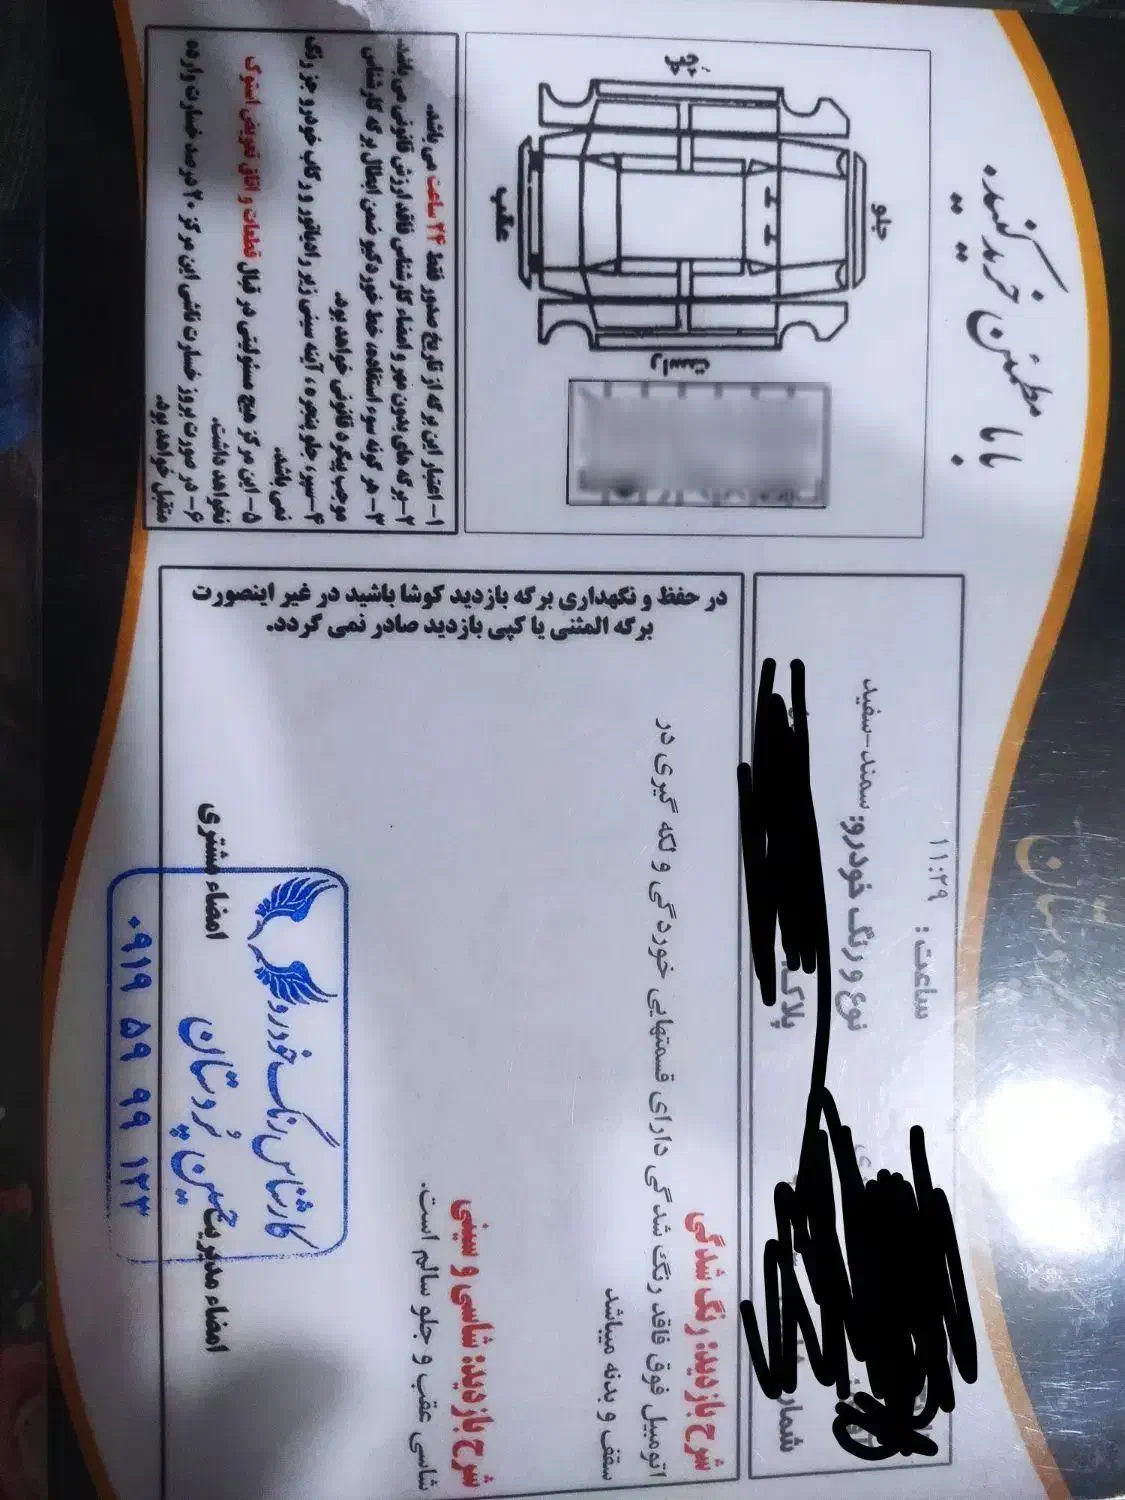 با ما مطمئن خرید کنید
ساعت: ۱۱:۲۹
نوع و رنگ خودرو: سمند-سفید
پلاک:
شمار
شرح بازدید: رنگ شدگی
اتومبیل فوق فاقد رنگ شدگی دارای قسمتهایی خوردگی و لکه گیری در
سقف و بدنه میباشد
شرح بازدید: شاسی و سینی
شاسی عقب و جلو سالم است.
در حفظ و نگهداری برگه بازدید کوشا باشید در غیر اینصورت
برگه المثنی یا کپی بازدید صادر نمی گردد.
امضاء مدیریت
امضاء مشتری
کارشناس رنگ خودرو
حسین پُروستان
۰۹۱۹ ۵۹ ۹۹ ۱۳۳
جلو
چپ
راست
عقب
۱- اعتبار این برگه از تاریخ صدور فقط ۲۴ ساعت می باشد.
۲- برگه های بدون مهر و امضاء کارشناس فاقد ارزش قانونی می باشد.
۳- هر گونه سوء استفاده، خط خوردگی و ضمن ابطال برگه کارشناس
موجب پیگرد قانونی خواهد بود.
۴- سپر، جلو پنجره، آینه سینی زیر رادیاتور و رکاب خودرو جز رنگ
نمی باشد.
۵- این مرکز هیچ مسئولیتی در قبال قطعات و اتاق تعویض استوک
نخواهد داشت.
۶- در صورت بروز خسارت ناشی این مرکز ۲۰ درصد خسارت وارده
متقبل خواهد بود.